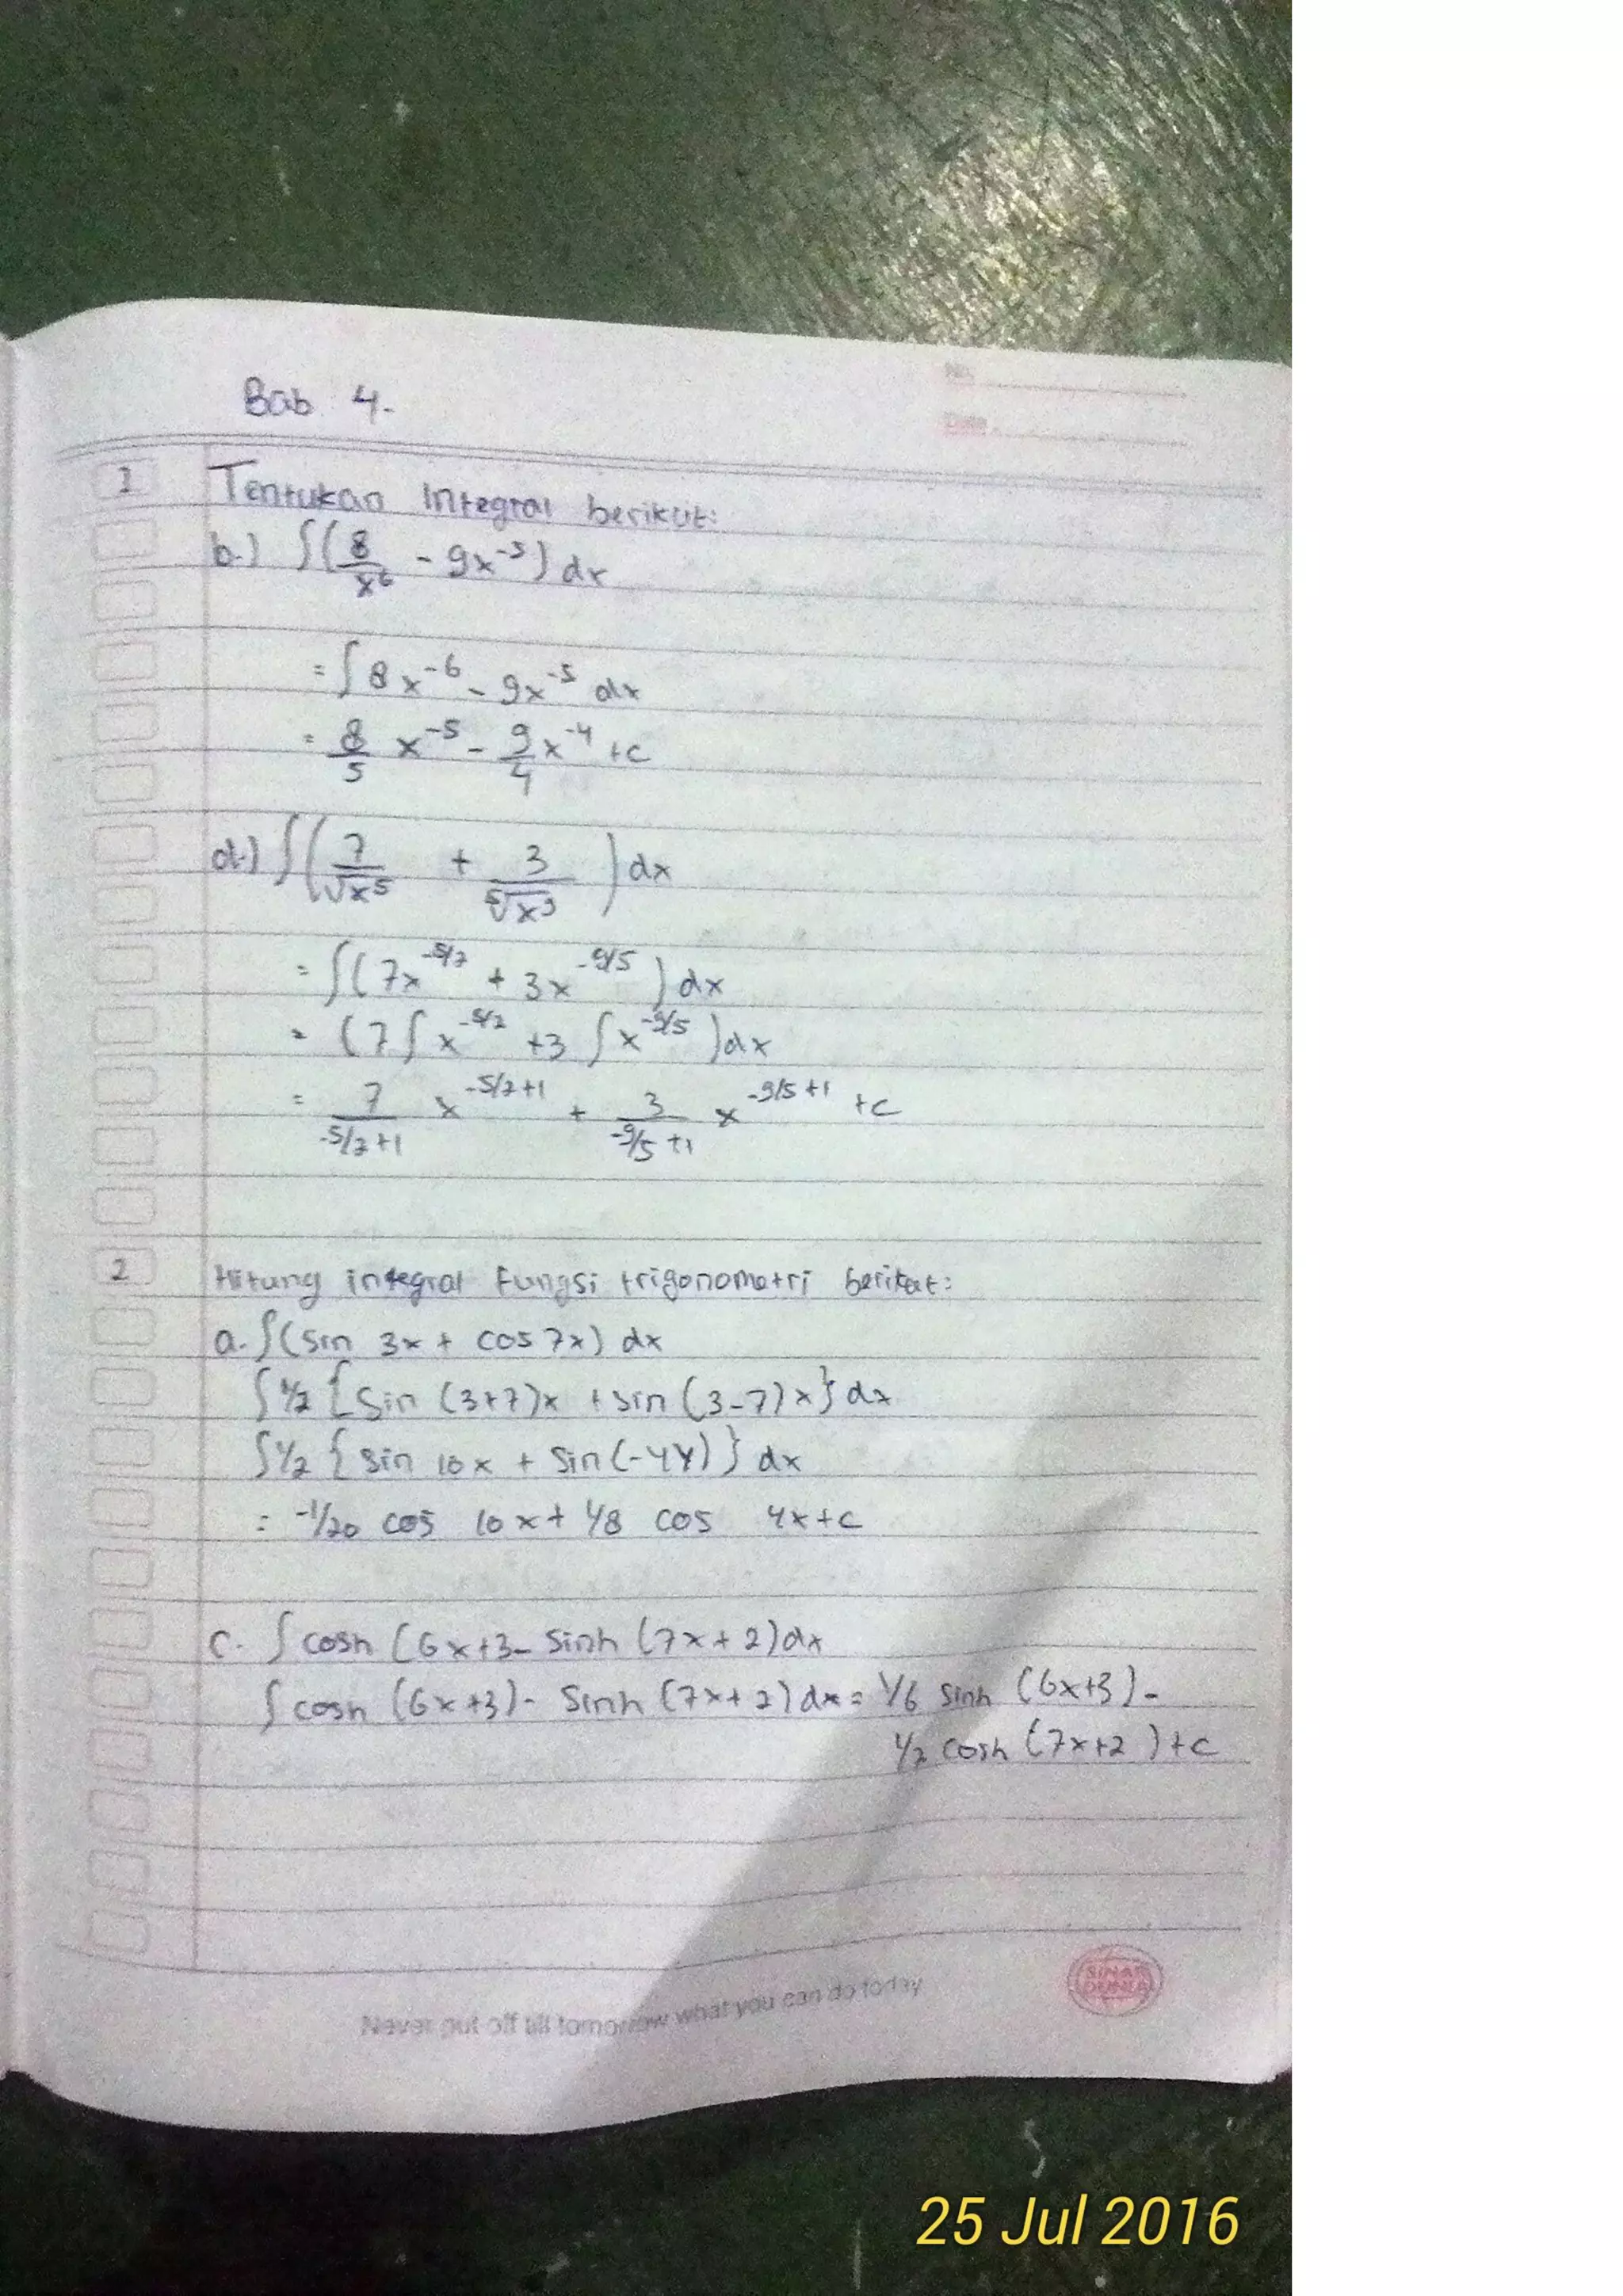 Bab 4.
No.
Date.
1 Tentukan integral berikut:
b.) ∫(8/x⁶ - 9x⁻⁵) dx
= ∫ 8x⁻⁶ - 9x⁻⁵ dx
= 8/5 x⁻⁵ - 9/4 x⁻⁴ + c
d.) ∫(7/√x⁵ + 3/⁵√x⁹) dx
= ∫(7x^-5/2 + 3x^-9/5) dx
= (7∫x^-5/2 + 3∫x^-9/5) dx
= 7/(-5/2+1) x^-5/2+1 + 3/(-9/5+1) x^-9/5+1 + c
2 Hitung integral fungsi trigonometri berikut:
a. ∫(sin 3x + cos 7x) dx
∫ 1/2 {sin (3+7)x + sin (3-7)x} dx
∫ 1/2 {sin 10x + sin(-4x)} dx
= -1/20 cos 10x + 1/8 cos 4x + c
c. ∫ cosh (6x+3 - sinh (7x+2) dx
∫ cosh (6x+3) - sinh (7x+2) dx = 1/6 sinh (6x+3) -
1/7 cosh (7x+2) + c
SINAR DUNIA
Never put off till tomorrow what you can do today
25 Jul 2016